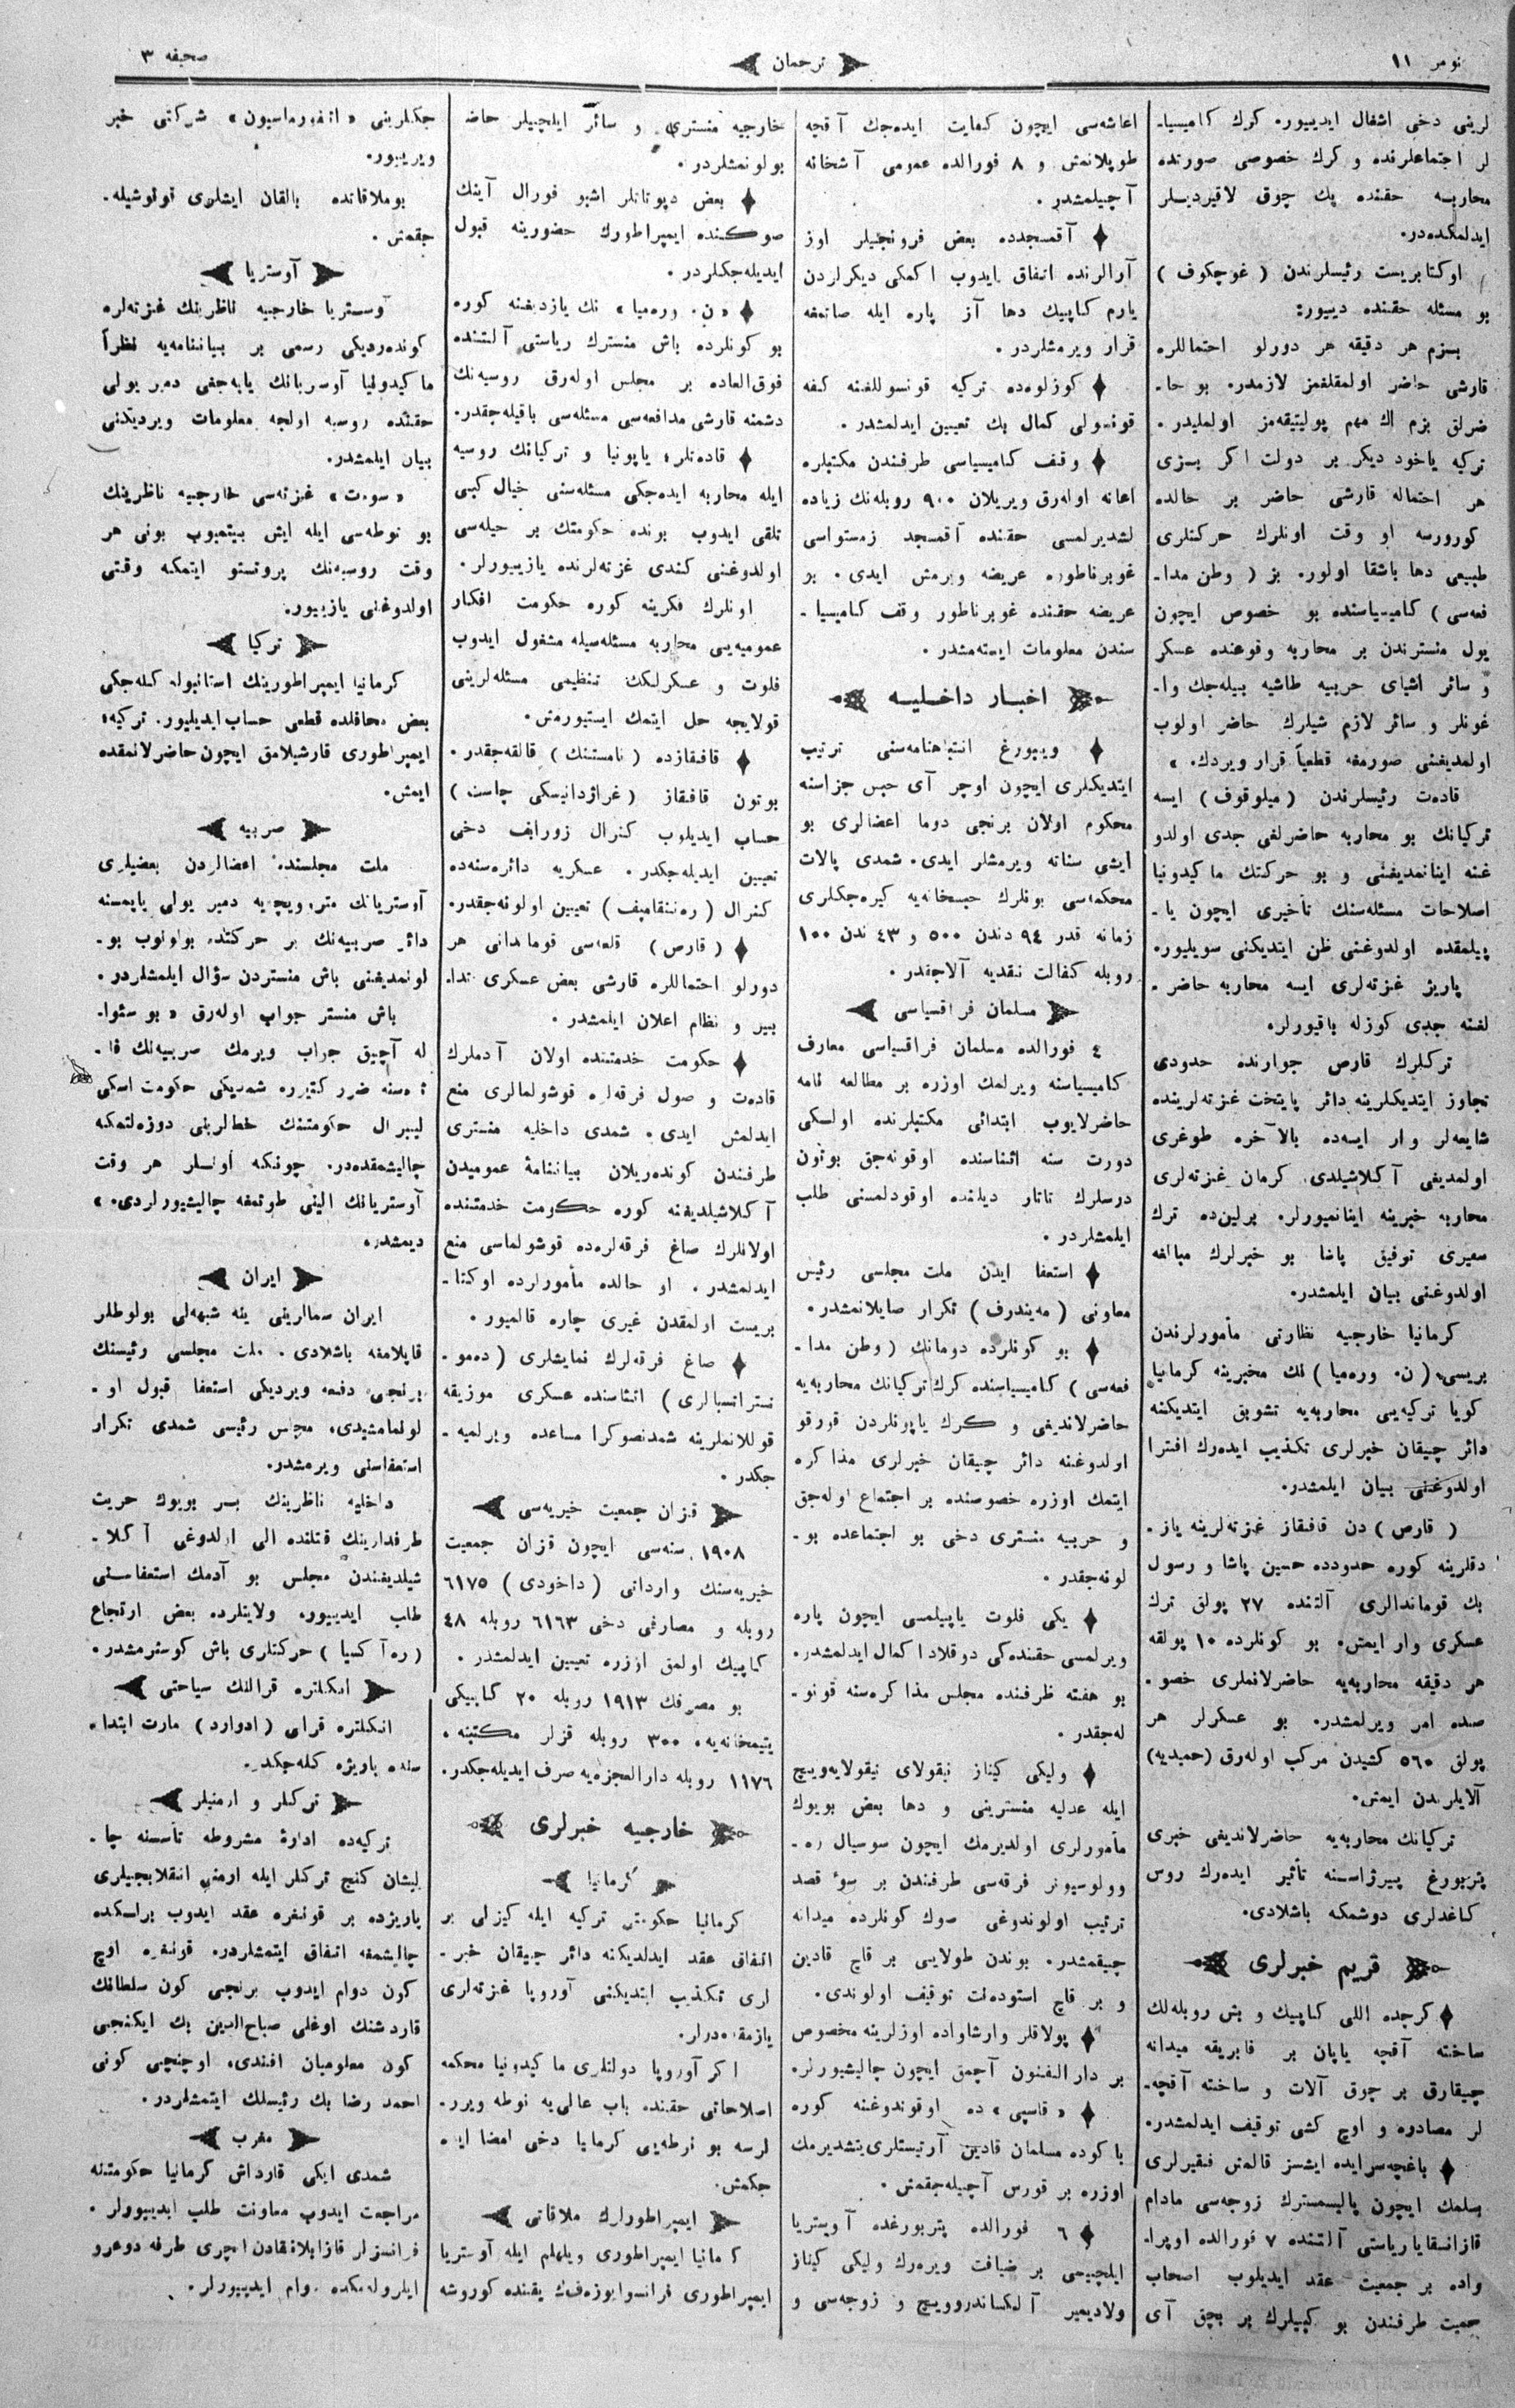 نومر ١١
ترجمان
صحیفه ٣
لرینی دخی اشغال ایدییور. کرك کامیسیا-
لر اجتماعلرنده و کرك خصوصی صورتده
محاربه حقنده پك چوق لاقیردیلر
ایدلمکده‌در.
اوکتابریست رئیسلرندن (غوچکوف)
بو مسئله حقنده دییور:
بزم هر دقیقه هر دورلو احتماللره
قارشی حاضر اولمقلغمز لازمدر. بو حا-
ضرلق بزم اك مهم پولیتیقه‌مز اولملیدر.
ترکیه یاخود دیکر بر دولت اکر بزی
هر احتماله قارشی حاضر بر حالده
کورورسه او وقت اونلرك حرکتلری
طبیعی دها باشقا اولور. بز (وطن مدا-
فعه‌سی) کامیسیاسنده بو خصوص ایچون
یول منسترندن بر محاربه وقوعنده عسکر
و سائر اشیای حربیه طاشیه بیله‌جك وا-
غونلر و سائر لازم شیلرك حاضر اولوب
اولمدیغنی صورمغه قطعیاً قرار ویردك. »
قاده‌ت رئیسلرندن (میلوقوف) ایسه
ترکیانك بو محاربه حاضرلغی جدی اولدو
غنه اینانمدیغنی و بو حرکتك ماکیدونیا
اصلاحات مسئله‌سنك تاخیری ایچون یا-
پیلمقده اولدوغنی ظن ایتدیکنی سویلیور.
پاریژ غزته‌لری ایسه محاربه حاضر-
لغنه جدی کوزله باقیورلر.
ترکلرك قارص جوارنده حدودی
تجاوز ایتدیکلرینه دائر پایتخت غزته‌لرینده
شایعه‌لر وار ایسه‌ده بالآخره طوغری
اولمدیغی آکلاشیلدی. کرمان غزته‌لری
محاربه خبرینه اینانمیورلر. برلین‌ده ترك
سفیری توفیق پاشا بو خبرلرك مبالغه
اولدوغنی بیان ایلمشدر.
کرمانیا خارجیه نظارتی مأمورلرندن
بریسی (ن. وره‌میا) نك مخبرینه کرمانیا
کویا ترکیه‌یی محاربه‌یه تشویق ایتدیکنه
دائر چیقان خبرلری تکذیب ایده‌رك افترا
اولدوغنی بیان ایلمشدر.
(قارص) دن قافقاز غزته‌لرینه یاز-
دقلرینه کوره حدودده حسین پاشا و رسول
بك قوماندالری آلتنده ٢٧ پولق ترك
عسکری وار ایمش. بو کونلرده ١٠ پولقه
هر دقیقه محاربه‌یه حاضرلانملری خصو-
صنده امر ویرلمشدر. بو عسکرلر هر
پولق ٥٦٠ کشیدن مرکب اوله‌رق (حمیدیه)
آلایلرندن ایمش.
ترکیانك محاربه‌یه حاضرلاندیغی خبری
پتربورغ بیرژاسنه تأثیر ایده‌رك روس
کاغدلری دوشمکه باشلادی.
قریم خبرلری
کرجده اللی کاپیك و بش روبله‌لك
ساخته آقچه یاپان بر فابریقه میدانه
چیقارق بر چوق آلات و ساخته آقچه-
لر مصادره و اوچ کشی توقیف ایدلمشدر.
باغچه‌سرایده ایشسز قالمش فقیرلری
بسلمك ایچون پالیسمسترك زوجه‌سی مادام
قازانسقایا ریاستی آلتنده ٧ فورالده اوپرا-
واده بر جمعیت عقد ایدیلوب اصحاب
حمیت طرفندن بو کیپیلرك بر بچق آی
اعاشه‌سی ایچون کفایت ایده‌جك آقچه
طوپلانمش و ٨ فورالده عمومی آشخانه
آچیلمشدر.
آقمسجدده بعض فرونجیلر اوز
آرالرنده اتفاق ایدوب اکمکی دیکرلردن
یارم کاپیك دها آز پاره ایله صاتمغه
قرار ویرمشلردر.
کوزلوه‌ده ترکیه قونسوللغنه کفه
قونسولی کمال بك تعیین ایدلمشدر.
وقف کامیسیاسی طرفندن مکتبلره
اعانه اوله‌رق ویریلان ٩٠٠ روبله‌نك زیاده
لشدیرلمسی حقنده آقمسجد زمستواسی
غوبرناطوره عریضه ویرمش ایدی. بو
عریضه حقنده غوبرناطور وقف کامیسیا-
سندن معلومات ایسته‌مشدر.
اخبار داخلیه
ویبورغ انتباهنامه‌سنی ترتیب
ایتدیکلری ایچون اوچر آی حبس جزاسنه
محکوم اولان برنجی دوما اعضالری بو
ایشی سناته ویرمشلر ایدی. شمدی پالات
محکمه‌سی بونلرك حبسخانه‌یه کیره‌جکلری
زمانه قدر ٩٤ دندن ٥٠٠ و ٤٣ ندن ١٠٠
روبله کفالت نقدیه آلاجقدر.
مسلمان فراقسیاسی
٤ فورالده مسلمان فراقسیاسی معارف
کامیسیاسنه ویرلمك اوزره بر مطالعه نامه
حاضرلایوب ابتدائی مکتبلرنده اولسکی
دورت سنه اثناسنده اوقونه‌جق بوتون
درسلرك تاتار دیلنده اوقودلمسنی طلب
ایلمشلردر.
استعفا ایدن ملت مجلسی رئیس
معاونی (مه‌یندرف) تکرار صایلانمشدر.
بو کونلرده دومانك (وطن مدا-
فعه‌سی) کامیسیاسنده کرك ترکیانك محاربه‌یه
حاضرلاندیغی و کرك یاپونلردن قورقو
اولدوغنه دائر چیقان خبرلری مذاکره
ایتمك اوزره خصوصنده بر اجتماع اوله‌جق
و حربیه منستری دخی بو اجتماعده بو-
لونه‌جقدر.
یکی فلوت یاپیلمسی ایچون پاره
ویرلمسی حقنده‌کی دوقلاد اکمال ایدلمشدر.
بو هفته ظرفنده مجلس مذاکره‌سنه قونو-
له‌جقدر.
ولیکی کیناز نیقولای نیقولایه‌ویچ
ایله عدلیه منسترینی و دها بعض بویوك
مأمورلری اولدیرمك ایچون سوسیال ره-
وولوسیونر فرقه‌سی طرفندن بر سوء قصد
ترتیب اولوندوغی صوك کونلرده میدانه
چیقمشدر. بوندن طولایی بر قاچ قادین
و بر قاچ استوده‌نت توقیف اولوندی.
پولاقلر وارشاواده اوزلرینه مخصوص
بر دار الفنون آچمق ایچون چالیشیورلر.
« قاسپی » ده اوقوندوغنه کوره
باکوده مسلمان قادین آرتیستلری یتشدیرمك
اوزره بر قورس آچیله‌جقمش.
٦ فورالده پتربورغده آوستریا
ایلچیسی بر ضیافت ویره‌رك ولیکی کیناز
ولادیمیر آلکساندروویچ و زوجه‌سی و
خارجیه منستری و سائر ایلچیلر حاضر
بولونمشلردر.
بعض دپوتاتلر اشبو فورال آینك
صوکنده ایمپراطورك حضورینه قبول
ایدیله‌جکلردر.
« ن. وره‌میا » نك یازدیغنه کوره
بو کونلرده باش منسترك ریاستی آلتنده
فوق‌العاده بر مجلس اوله‌رق روسیه‌نك
دشمنه قارشی مدافعه‌سی مسئله‌سی باقیله‌جقدر.
قاده‌تلر؛ یاپونیا و ترکیانك روسیه
ایله محاربه ایده‌جکی مسئله‌سنی خیال کبی
تلقی ایدوب بونده حکومتك بر حیله‌سی
اولدوغنی کندی غزته‌لرنده یازییورلر.
اونلرك فکرینه کوره حکومت افکار
عمومیه‌یی محاربه مسئله‌سیله مشغول ایدوب
فلوت و عسکرلکك تنظیمی مسئله‌لرینی
قولایجه حل ایتمك ایستیورمش.
قافقازده (نامستنك) قالقه‌جقدر.
بوتون قافقاز (غراژدانیسکی چاست)
حساب ایدیلوب کنرال زورابف دخی
تعیین ایدیله‌جکدر. عسکریه دائره‌سنه‌ده
کنرال (ره‌ننقامپف) تعیین اولونه‌جقدر.
(قارص) قلعه‌سی قوماندانی هر
دورلو احتماللره قارشی بعض عسکری تدا-
بیر و نظام اعلان ایلمشدر.
حکومت خدمتنده اولان آدملرك
قاده‌ت و صول فرقه‌لره قوشولمالری منع
ایدلمش ایدی. شمدی داخلیه منستری
طرفندن کونده‌ریلان بیاننامهٔ عمومیدن
آکلاشیلدیغنه کوره حکومت خدمتنده
اولانلرك صاغ فرقه‌لره‌ده قوشولماسی منع
ایدلمشدر. او حالده مأمورلرده اوکتا-
بریست اولمقدن غیری چاره قالمیور.
صاغ فرقه‌لرك نمایشلری (ده‌مو-
نستراتسیالری) اثناسنده عسکری موزیقه
قوللانملرینه شمدنصوکرا مساعده ویرلمیه-
جکدر.
قزان جمعیت خیریه‌سی
١٩٠٨ سنه‌سی ایچون قزان جمعیت
خیریه‌سنك وارداتی (داخودی) ٦١٧٥
روبله و مصارفی دخی ٦١٦٣ روبله ٤٨
کاپیك اولمق اوزره تعیین ایدلمشدر.
بو مصرفك ١٩١٣ روبله ٢٠ کاپیکی
یتیمخانه‌یه، ٣٠٠ روبله قزلر مکتبنه،
١١٧٦ روبله دارالعجزه‌یه صرف ایدیله‌جکدر.
خارجیه خبرلری
کرمانیا
کرمانیا حکومتی ترکیه ایله کیزلی بر
اتفاق عقد ایدلدیکنه دائر چیقان خبر-
لری تکذیب ایتدیکنی آوروپا غزته‌لری
یازمقده‌درلر.
اکر آوروپا دولتلری ماکیدونیا محکمه
اصلاحاتی حقنده باب عالی‌یه نوطه ویرر-
لرسه بو نوطه‌یی کرمانیا دخی امضا ایده
جکمش.
ایمپراطورلرك ملاقاتی
کرمانیا ایمپراطوری ویلهلم ایله آوستریا
ایمپراطوری فرانسوا یوزه‌فك یقنده کوروشه
جکلرینی « انفورماسیون » شرکتی خبر
ویرییور.
بو ملاقاتده بالقان ایشلری قونوشیله-
جقمش.
آوستریا
آوستریا خارجیه ناظرینك غزته‌لره
کونده‌ردیکی رسمی بر بیاننامه‌یه نظراً
ماکیدونیا آوستریانك یاپه‌جغی دمیر یولی
حقنده روسیه اولجه معلومات ویردیکنی
بیان ایلمشدر.
« سوه‌ت » غزته‌سی خارجیه ناظرینك
بو نوطه‌سی ایله ایش بیتمیوب بونی هر
وقت روسیه‌نك پروتستو ایتمکه وقتی
اولدوغنی یازییور.
ترکیا
کرمانیا ایمپراطورینك استانبوله کله‌جکی
بعض محافلده قطعی حساب ایدیلیور. ترکیه؛
ایمپراطوری قارشیلامق ایچون حاضرلانمقده
ایمش.
صربیه
ملت مجلسنده اعضالردن بعضیلری
آوستریانك متروویچه‌یه دمیر یولی یاپمسنه
دائر صربیه‌نك بر حرکتده بولونوب بو-
لونمدیغنی باش منستردن سؤال ایلمشلردر.
باش منستر جواب اوله‌رق « بو سئوا-
له آچیق جواب ویرمك صربیه‌نك فا-
ئده‌سنه ضرر کتیرر، شمدیکی حکومت اسکی
لیبرال حکومتنك خطالرینی دوزه‌لتمکه
چالیشمقده‌در. چونکه اونلر هر وقت
آوستریانك الینی طوتمغه چالیشیورلردی. »
دیمشدر.
ایران
ایران سمالرینی ینه شبهه‌لی بولوطلر
قاپلامغه باشلادی. ملت مجلسی رئیسنك
برنجی دفعه ویردیکی استعفا قبول او-
لولمامشیدی، مجلس رئیسی شمدی تکرار
استعفاسنی ویرمشدر.
داخلیه ناظرینك بر بویوك حریت
طرفدارینك قتلنده الی اولدوغی آکلا-
شیلدیغندن مجلس بو آدمك استعفاسنی
طلب ایدییور. ولایتلرده بعض ارتجاع
(ره‌آکسیا) حرکتلری باش کوسترمشدر.
انکلتره قرالنك سیاحتی
انکلتره قرالی (ادوارد) مارت ابتدا-
سنده پاریژه کله‌جکدر.
ترکلر و ارمنیلر
ترکیه‌ده ادارهٔ مشروطه تأسسنه چا-
لیشان کنج ترکلر ایله ارمنی انقلابجیلری
پاریژده بر قونفره عقد ایدوب برلکده
چالیشمغه اتفاق ایتمشلردر. قونفره اوچ
کون دوام ایدوب برنجی کون سلطانك
قارداشنك اوغلی صباح‌الدین بك ایکنجی
کون معلومیان افندی، اوچنجی کونی
احمد رضا بك رئیسلك ایتمشلردر.
مغرب
شمدی ایکی قارداش کرمانیا حکومتنه
مراجعت ایدوب معاونت طلب ایدییورلر.
فرانسزلر قازابلانقادن ایچری طرفه دوغرو
ایلرولمکده دوام ایدییورلر.